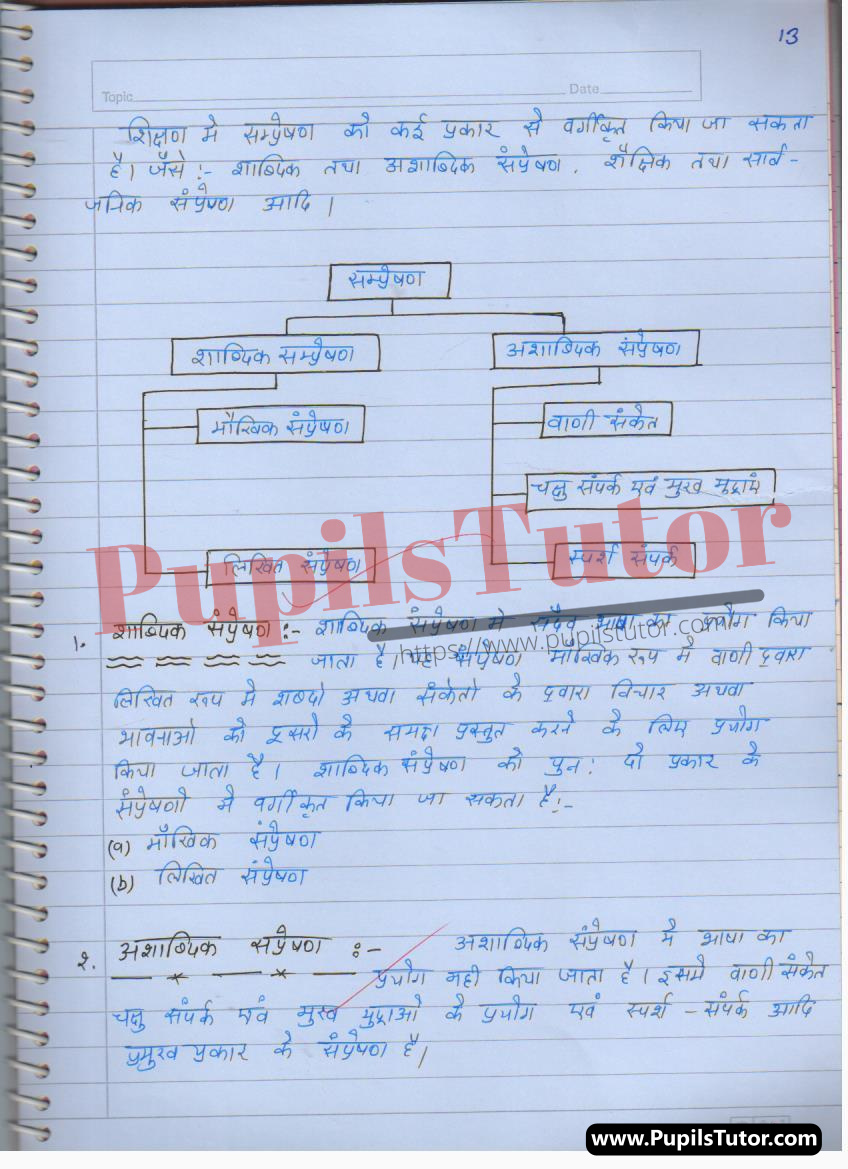 13
Topic Date
शिक्षण मे सम्प्रेषण को कई प्रकार से वर्गीकृत किया जा सकता
है। जैसे :- शाब्दिक तथा अशाब्दिक संप्रेषण. शैक्षिक तथा सार्व-
जनिक संप्रेषण आदि।
सम्प्रेषण
शाब्दिक सम्प्रेषण अशाब्दिक संप्रेषण
मौखिक संप्रेषण वाणी संकेत
चक्षु संपर्क एवं मुख मुद्राएं
PupilsTutor
लिखित संप्रेषण स्पर्श संपर्क
१. शाब्दिक संप्रेषण :- शाब्दिक संप्रेषण मे सदैव भाषा का प्रयोग किया
https://www.pupilstutor.com
जाता है। यह संप्रेषण मौखिक रूप मे वाणी द्वारा
लिखित रूप मे शब्दो अथवा संकेतो के द्वारा विचार अथवा
भावनाओ को दूसरो के समक्ष प्रस्तुत करने के लिए प्रयोग
किया जाता है। शाब्दिक संप्रेषण को पुन: दो प्रकार के
संप्रेषणो मे वर्गीकृत किया जा सकता है:-
(a) मौखिक संप्रेषण
(b) लिखित संप्रेषण
२. अशाब्दिक संप्रेषण :- अशाब्दिक संप्रेषण मे भाषा का
प्रयोग नही किया जाता है। इसमे वाणी संकेत
चक्षु संपर्क एवं मुख मुद्राओ के प्रयोग एवं स्पर्श - संपर्क आदि
प्रमुख प्रकार के संप्रेषण है।
www.PupilsTutor.com